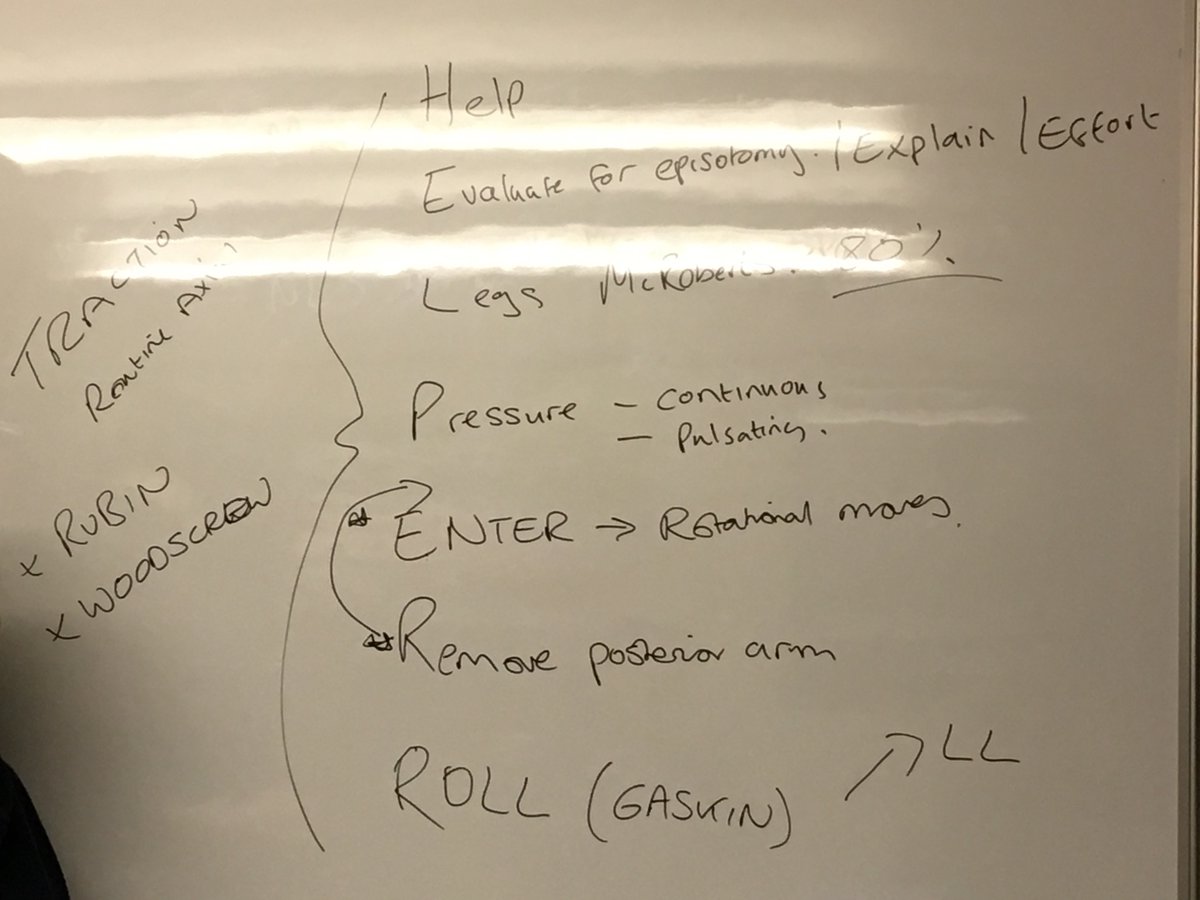 Help
Evaluate for episotomy. / Explain / Effort
Legs McRoberts. 80%
Pressure - continuous
- pulsating.
ENTER → Rotational moves.
Remove posterior arm
ROLL (GASKIN) ↗ LL
TRACTION
Routine Axial
x RUBIN
x WOODSCREW